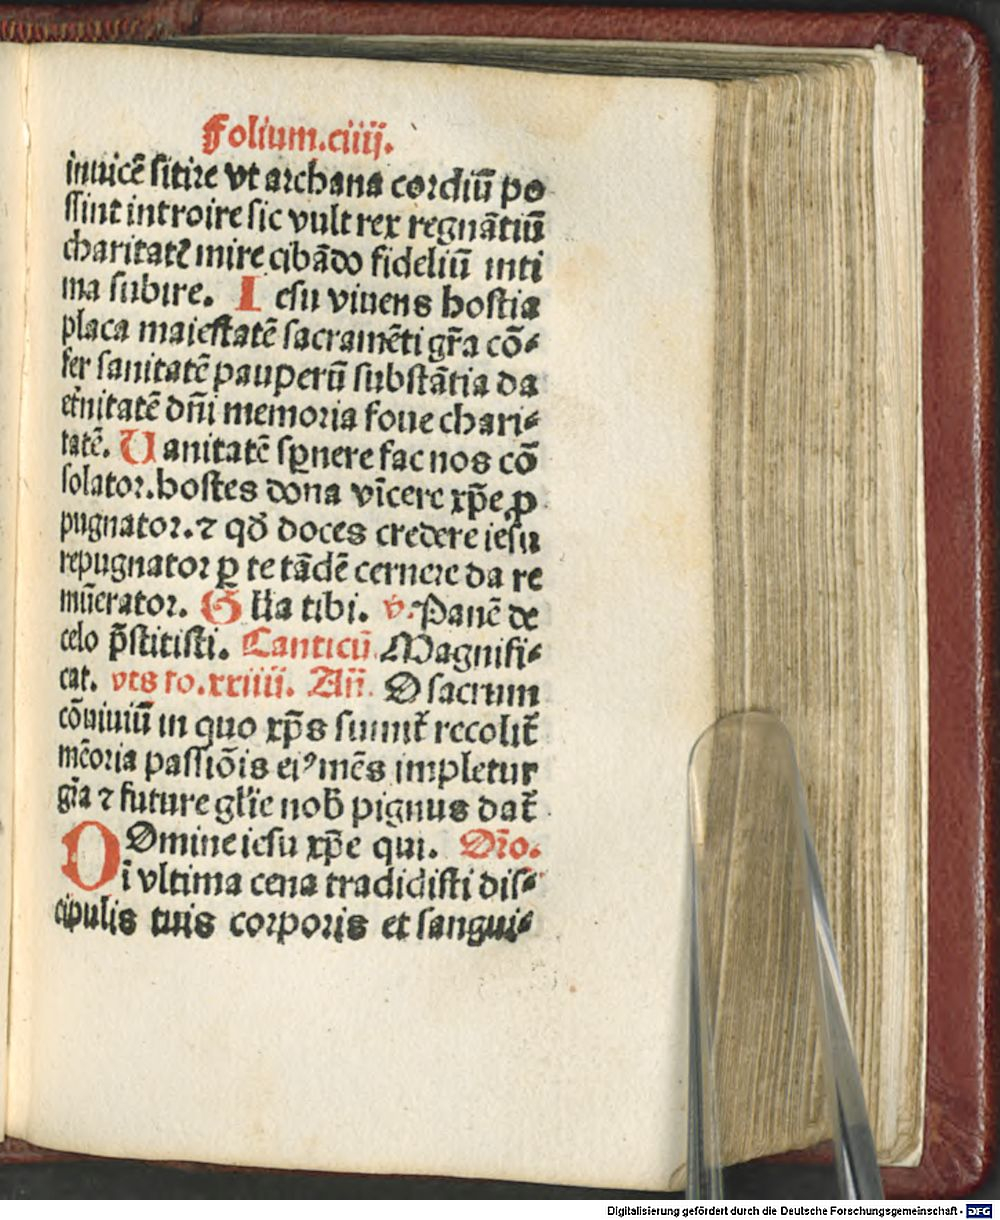 Folium.ciiij.
inuicē sitire vt archana cordiū po
ssint introire sic vult rex regnātiū
charitatꝭ mire cibādo fideliū inti
ma subire. Iesu viuens hostia
placa maiestatē sacramēti gr̄a cō⸗
fer sanitatē pauperū substātia da
et̄nitatē dn̄i memoria foue chari⸗
tatē. Uanitatē sꝑnere fac nos cō
solator. hostes dona vīcere xp̄e ꝓ
pugnator. ⁊ qđ doces credere iesu
repugnator ꝑ te tādē cernere da re
mūerator. Gl̄ia tibi. v̄. Panē de
celo p̄stitisti. Canticū. Magnifi⸗
cat. vts fo.xxiiii. Añ. O sacrum
cōuiuiū in quo xp̄s sumit̄ recolit̄
mēoria passiōis eiꝰ mēs impletur
gr̄a ⁊ future gl̄ie nob̄ pignus dat̄
ODmine iesu xp̄e qui. Or̄o.
ī vltima cena tradidisti dis⸗
cipulis tuis corporis et sangui⸗
Digitalisierung gefördert durch die Deutsche Forschungsgemeinschaft - DFG